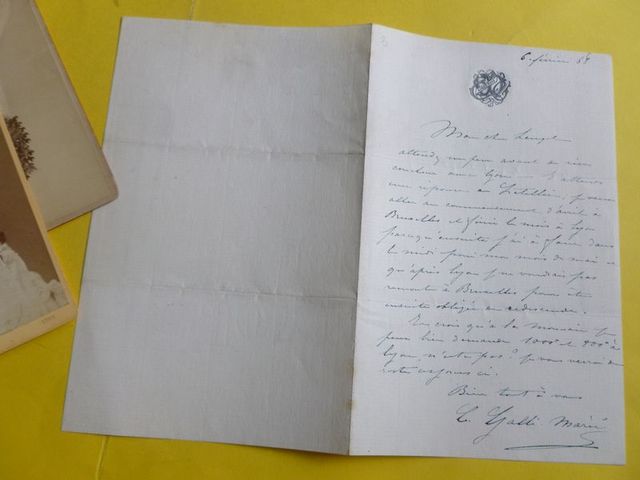 6 février 88
Mon cher Lengel
attendez un peu avant de rien
conclure avec Lyon — J'attends
une réponse de
aller au commencement d'avril à
Bruxelles et finir le mois à Lyon
parce qu'ensuite j'ai à faire dans
le midi pour mon mois de mai et
qu'après Lyon je ne voudrais pas
remonter à Bruxelles pour être
ensuite obligée de redescendre.
Tu crois qu'à la Monnaie je
peux bien demander 1000f et 800f à
Lyon, n'est-ce pas? je vous
Bien tout à vous
C. Galli-Marié